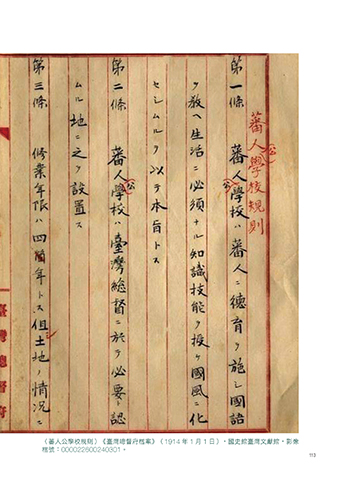 蕃人公學校規則
第一條　蕃人公學校ハ蕃人ニ德育ヲ施シ國語
ヲ敎ヘ生活ニ必須ナル知識技能ヲ授ケ國風ニ化
セシムルヲ以テ本旨トス
第二條　蕃人公學校ハ臺灣總督ニ於テ必要ト認
ムル地ニ之ヲ設置ス
第三條　修業年限ハ四箇年トス但土地ノ情況ニ
臺灣總督府
〈蕃人公學校規則〉《臺灣總督府檔案》（1914 年 1 月 1 日），國史館臺灣文獻館，影像
檔號：000022600240301。
113